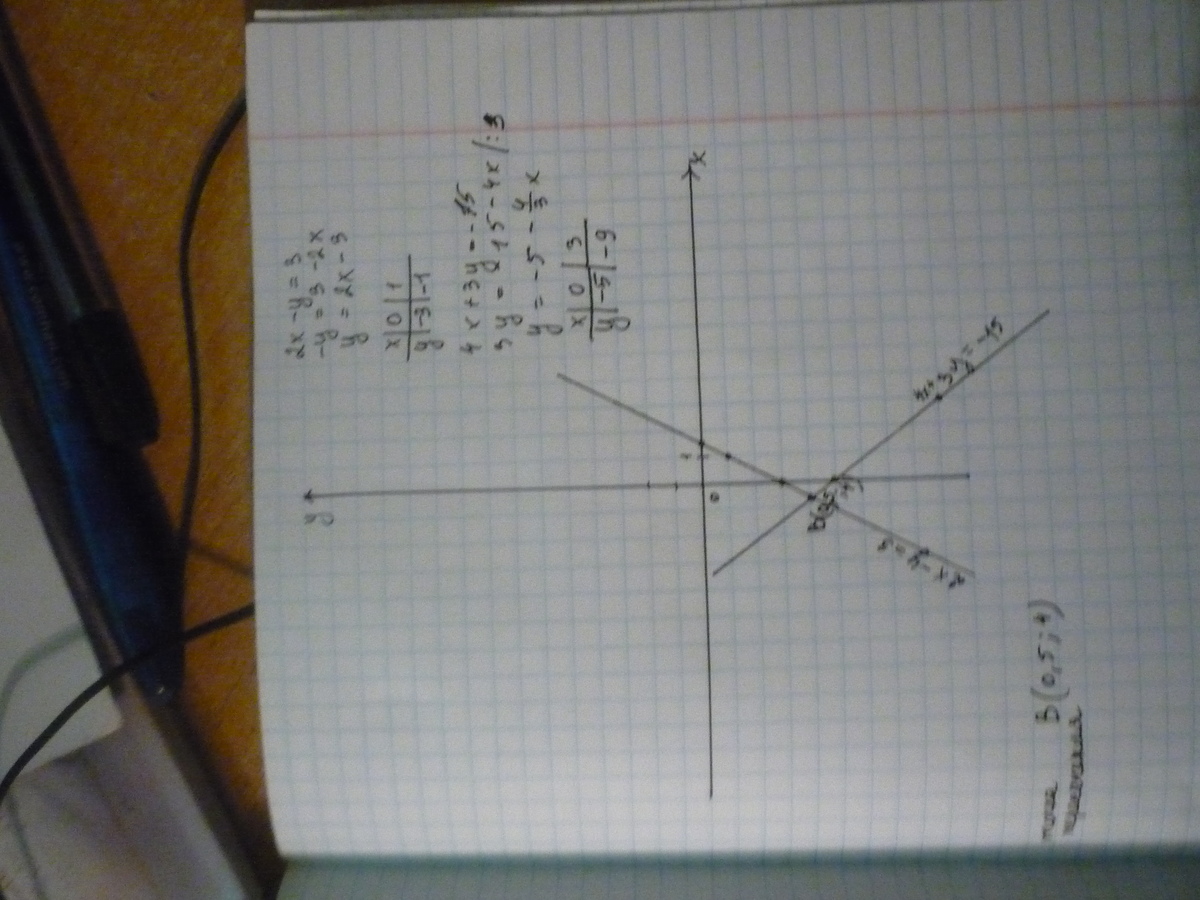 2x - y = 3
-y = 3 - 2x
y = 2x - 3
x | 0 | 1
y | -3 | -1
4x + 3y = -15
3y = 15 - 4x /:3
y = -5 - 4/3 x
x | 0 | 3
y | -5 | -9
y
x
1
0
B(
4x + 3y = -15
2x - y = 3
точка B(0,5; -4)
пересечения